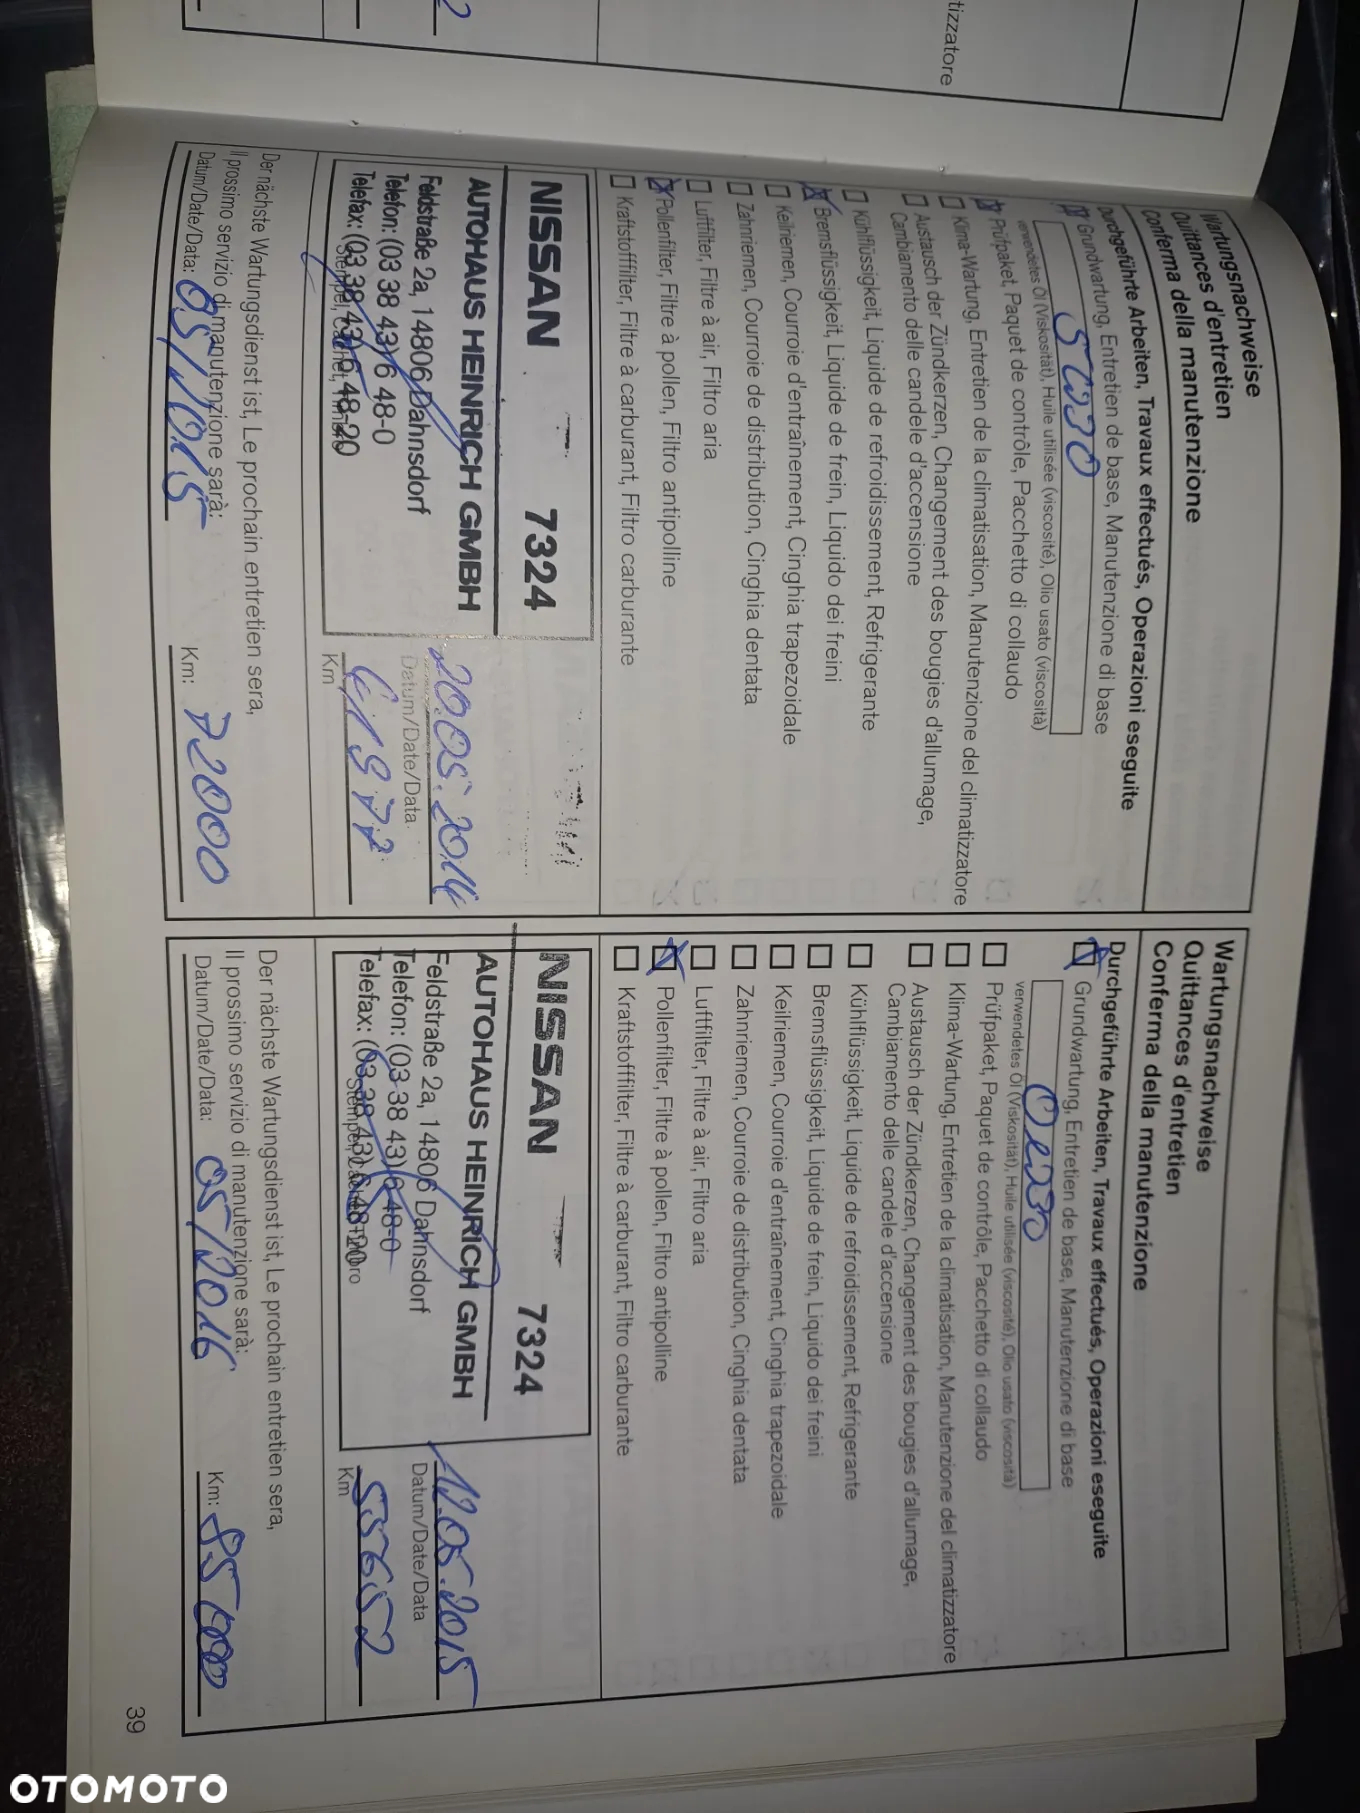 tizzatore
Wartungsnachweise
Quittances d'entretien
Conferma della manutenzione
Durchgeführte Arbeiten, Travaux effectués, Operazioni eseguite
Grundwartung, Entretien de base, Manutenzione di base
5W30
verwendetes Öl (Viskosität), Huile utilisée (viscosité), Olio usato (viscosità)
Prüfpaket, Paquet de contrôle, Pacchetto di collaudo
Klima-Wartung, Entretien de la climatisation, Manutenzione del climatizzatore
Austausch der Zündkerzen, Changement des bougies d'allumage,
Cambiamento delle candele d'accensione
Kühlflüssigkeit, Liquide de refroidissement, Refrigerante
Bremsflüssigkeit, Liquide de frein, Liquido dei freini
Keilriemen, Courroie d'entraînement, Cinghia trapezoidale
Zahnriemen, Courroie de distribution, Cinghia dentata
Luftfilter, Filtre à air, Filtro aria
Pollenfilter, Filtre à pollen, Filtro antipolline
Kraftstofffilter, Filtre à carburant, Filtro carburante
NISSAN 7324
AUTOHAUS HEINRICH GMBH
Feldstraße 2a, 14806 Dahnsdorf
Telefon: (03 38 43) 6 48-0
Telefax: (03 38 43) 6 48-20
Stempel, Cachet, Timbro
20.05.2014
Datum/Date/Data
Km
Der nächste Wartungsdienst ist, Le prochain entretien sera,
Il prossimo servizio di manutenzione sarà:
Datum/Date/Data: 05/2015
Km: 72000
Wartungsnachweise
Quittances d'entretien
Conferma della manutenzione
Durchgeführte Arbeiten, Travaux effectués, Operazioni eseguite
Grundwartung, Entretien de base, Manutenzione di base
0W30
verwendetes Öl (Viskosität), Huile utilisée (viscosité), Olio usato (viscosità)
Prüfpaket, Paquet de contrôle, Pacchetto di collaudo
Klima-Wartung, Entretien de la climatisation, Manutenzione del climatizzatore
Austausch der Zündkerzen, Changement des bougies d'allumage,
Cambiamento delle candele d'accensione
Kühlflüssigkeit, Liquide de refroidissement, Refrigerante
Bremsflüssigkeit, Liquide de frein, Liquido dei freini
Keilriemen, Courroie d'entraînement, Cinghia trapezoidale
Zahnriemen, Courroie de distribution, Cinghia dentata
Luftfilter, Filtre à air, Filtro aria
Pollenfilter, Filtre à pollen, Filtro antipolline
Kraftstofffilter, Filtre à carburant, Filtro carburante
NISSAN 7324
AUTOHAUS HEINRICH GMBH
Feldstraße 2a, 14806 Dahnsdorf
Telefon: (03 38 43) 6 48-0
Telefax: (03 38 43) 6 48-20
Stempel, Cachet, Timbro
12.05.2015
Datum/Date/Data
55652
Km
Der nächste Wartungsdienst ist, Le prochain entretien sera,
Il prossimo servizio di manutenzione sarà:
Datum/Date/Data: 05/2016
Km: 85000
39
OTOMOTO